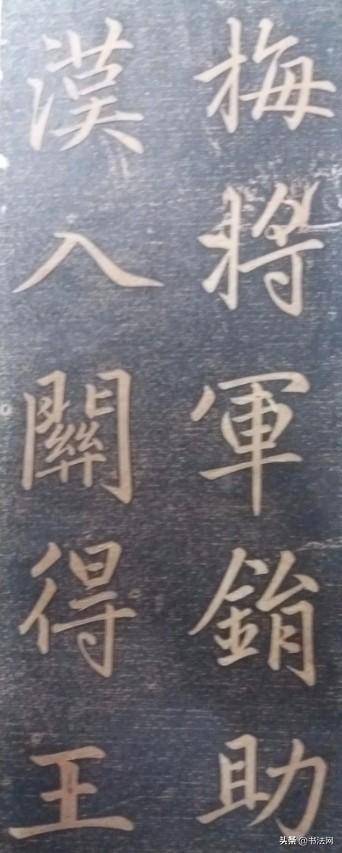 梅将軍鋗助
漢入關得王
头条 @书法网